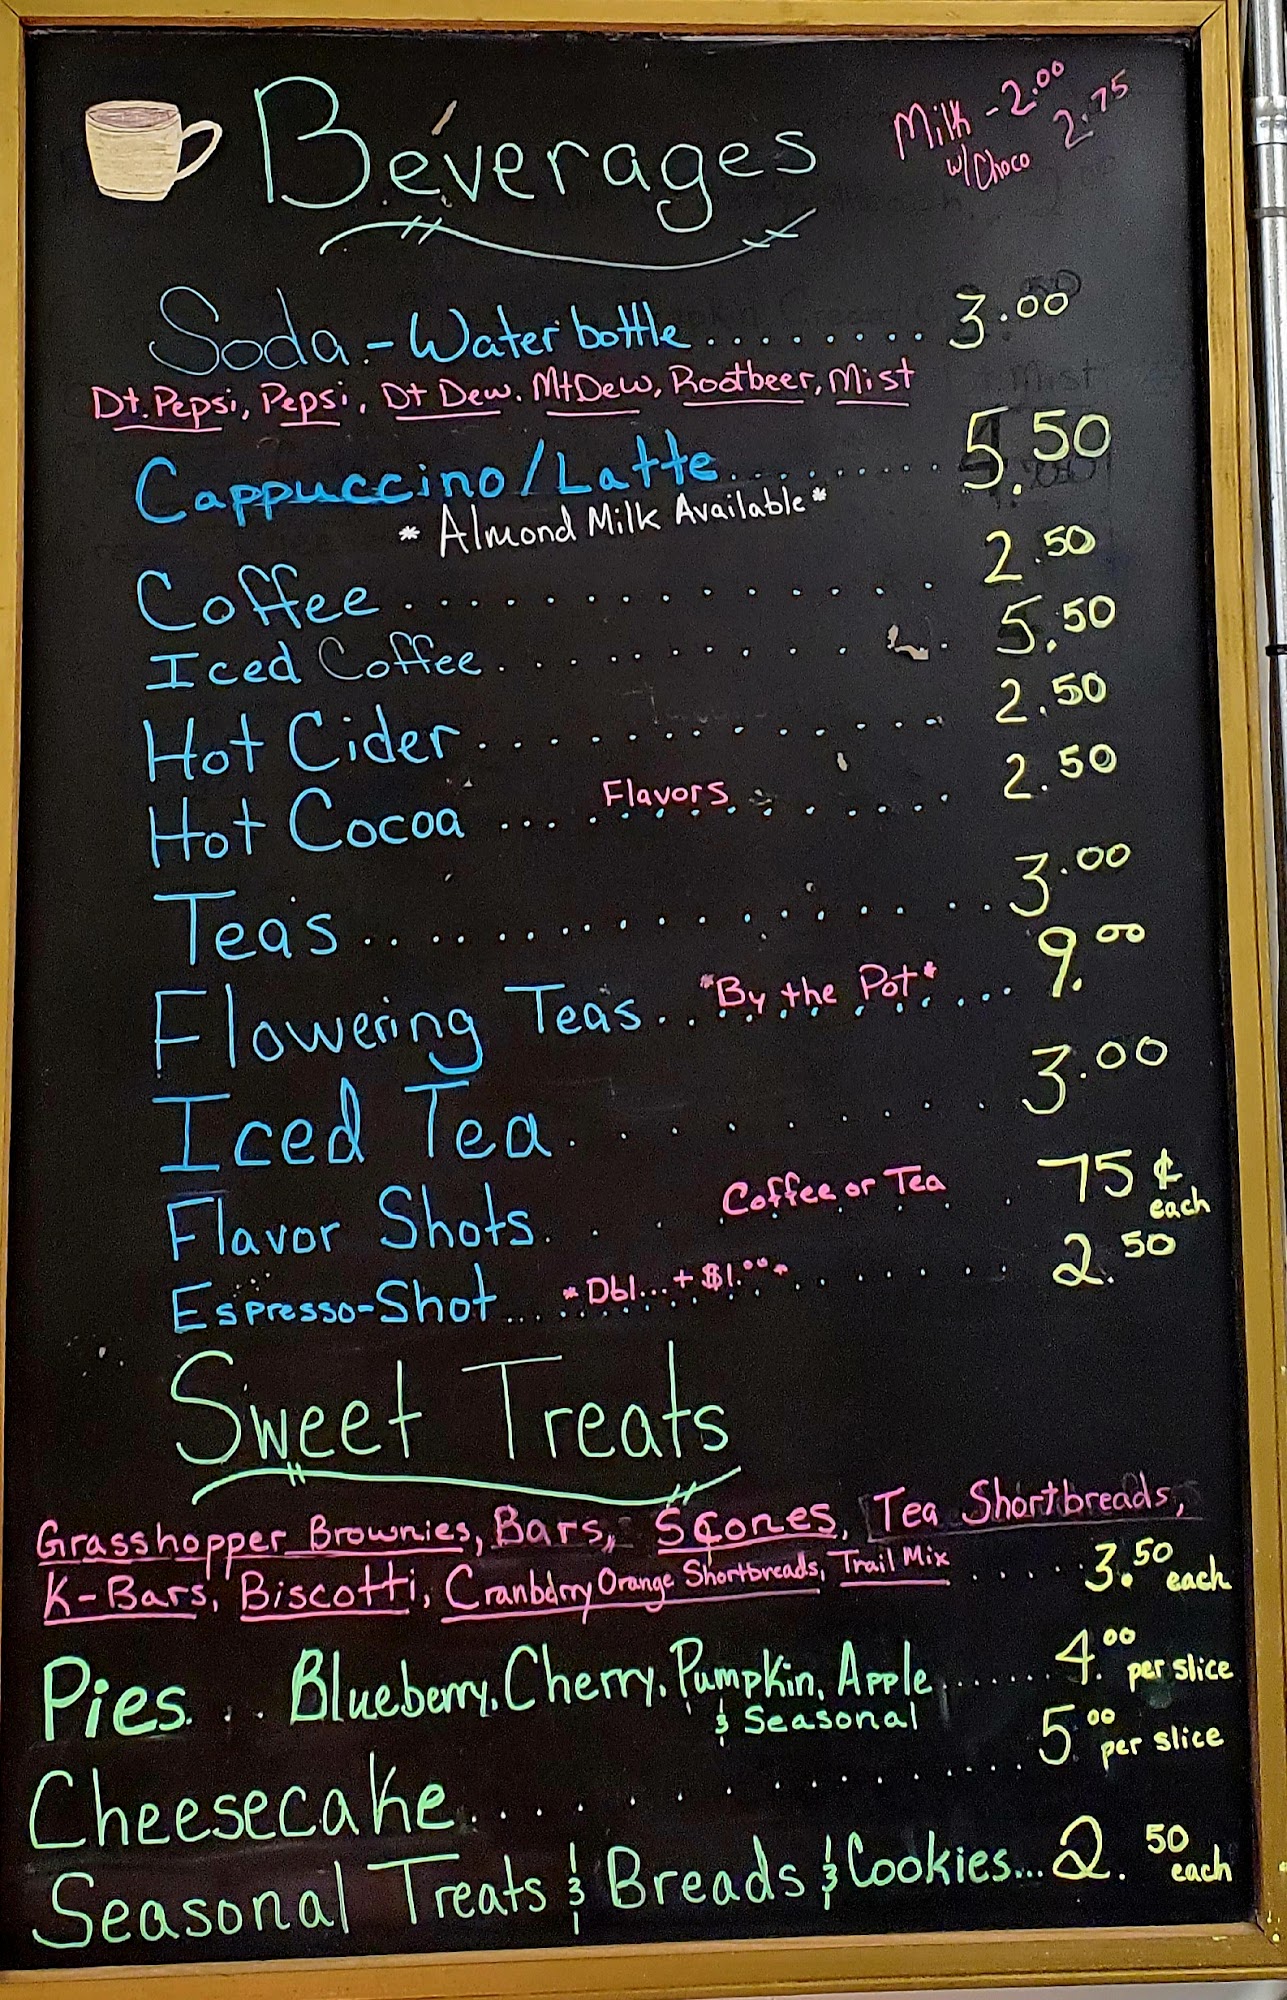 Beverages
Milk - 2.00
w/ Choco 2.75
Soda - Water bottle ........ 3.00
Dt. Pepsi, Pepsi, Dt Dew. Mt Dew, Rootbeer, Mist
Cappuccino/Latte......... 5.50
* Almond Milk Available *
Coffee ............... 2.50
Iced Coffee ............. 5.50
Hot Cider ............. 2.50
Hot Cocoa ... Flavors ........ 2.50
Teas ............... 3.00
Flowering Teas .. *By the Pot* .... 9.00
Iced Tea ......... 3.00
Flavor Shots ... Coffee or Tea . 75¢ each
Espresso-Shot ... *Dbl...+ $1.00* ........ 2.50
Sweet Treats
Grasshopper Brownies, Bars, Scones, Tea Shortbreads,
K-Bars, Biscotti, Cranberry Orange Shortbreads, Trail Mix .... 3.50 each
Pies ... Blueberry, Cherry, Pumpkin, Apple ...... 4.00 per slice
& Seasonal
Cheesecake ............ 5.00 per slice
Seasonal Treats & Breads & Cookies... 2.50 each